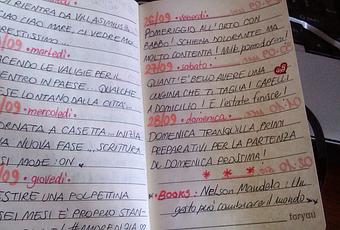 SI RIENTRA DA VALASIMUS
CIAO CIAO MARE, CI VEDREMO
PRESTISSIMO...
/09 • martedì •
FACENDO LE VALIGIE PER IL
RIENTRO IN PAESE... QUALCHE
MESE LONTANO DALLA CITTA'...
/09 • mercoledì •
GIORNATA A CASETTA... INIZIA
NUOVA FASE... SCRITTURA
MODE: ON
/09 • giovedì •
VESTIRE UNA POLPETTINA
SEI MESI E' PROPRIO STAN-
26/09 • venerdì •
POMERIGGIO ALL'ORTO CON
BABBO! SCHIENA DOLORANTE MA
MOLTO CONTENTA! Miti pomodorini!
27/09 • sabato •
QUANT'E' BELLO AVERE UNA
CUGINA CHE TI TAGLIA I CAPELLI
A DOMICILIO! E l'estate finisce!
28/09 • domenica •
DOMENICA TRANQUILLA, PRIMI
PREPARATIVI PER LA PARTENZA
DI DOMENICA PROSSIMA!
• BOOKS: Nelson Mandela: Un
gesto può cambiare il mondo